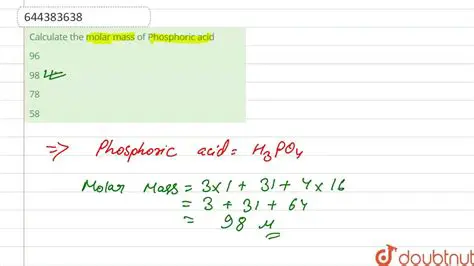 644383638
Calculate the molar mass of Phosphoric acid
96
98
78
58
⇒ Phosphoric acid = H₃PO₄
Molar Mass = 3×1 + 31 + 4×16
= 3 + 31 + 64
= 98 u
doubtnut